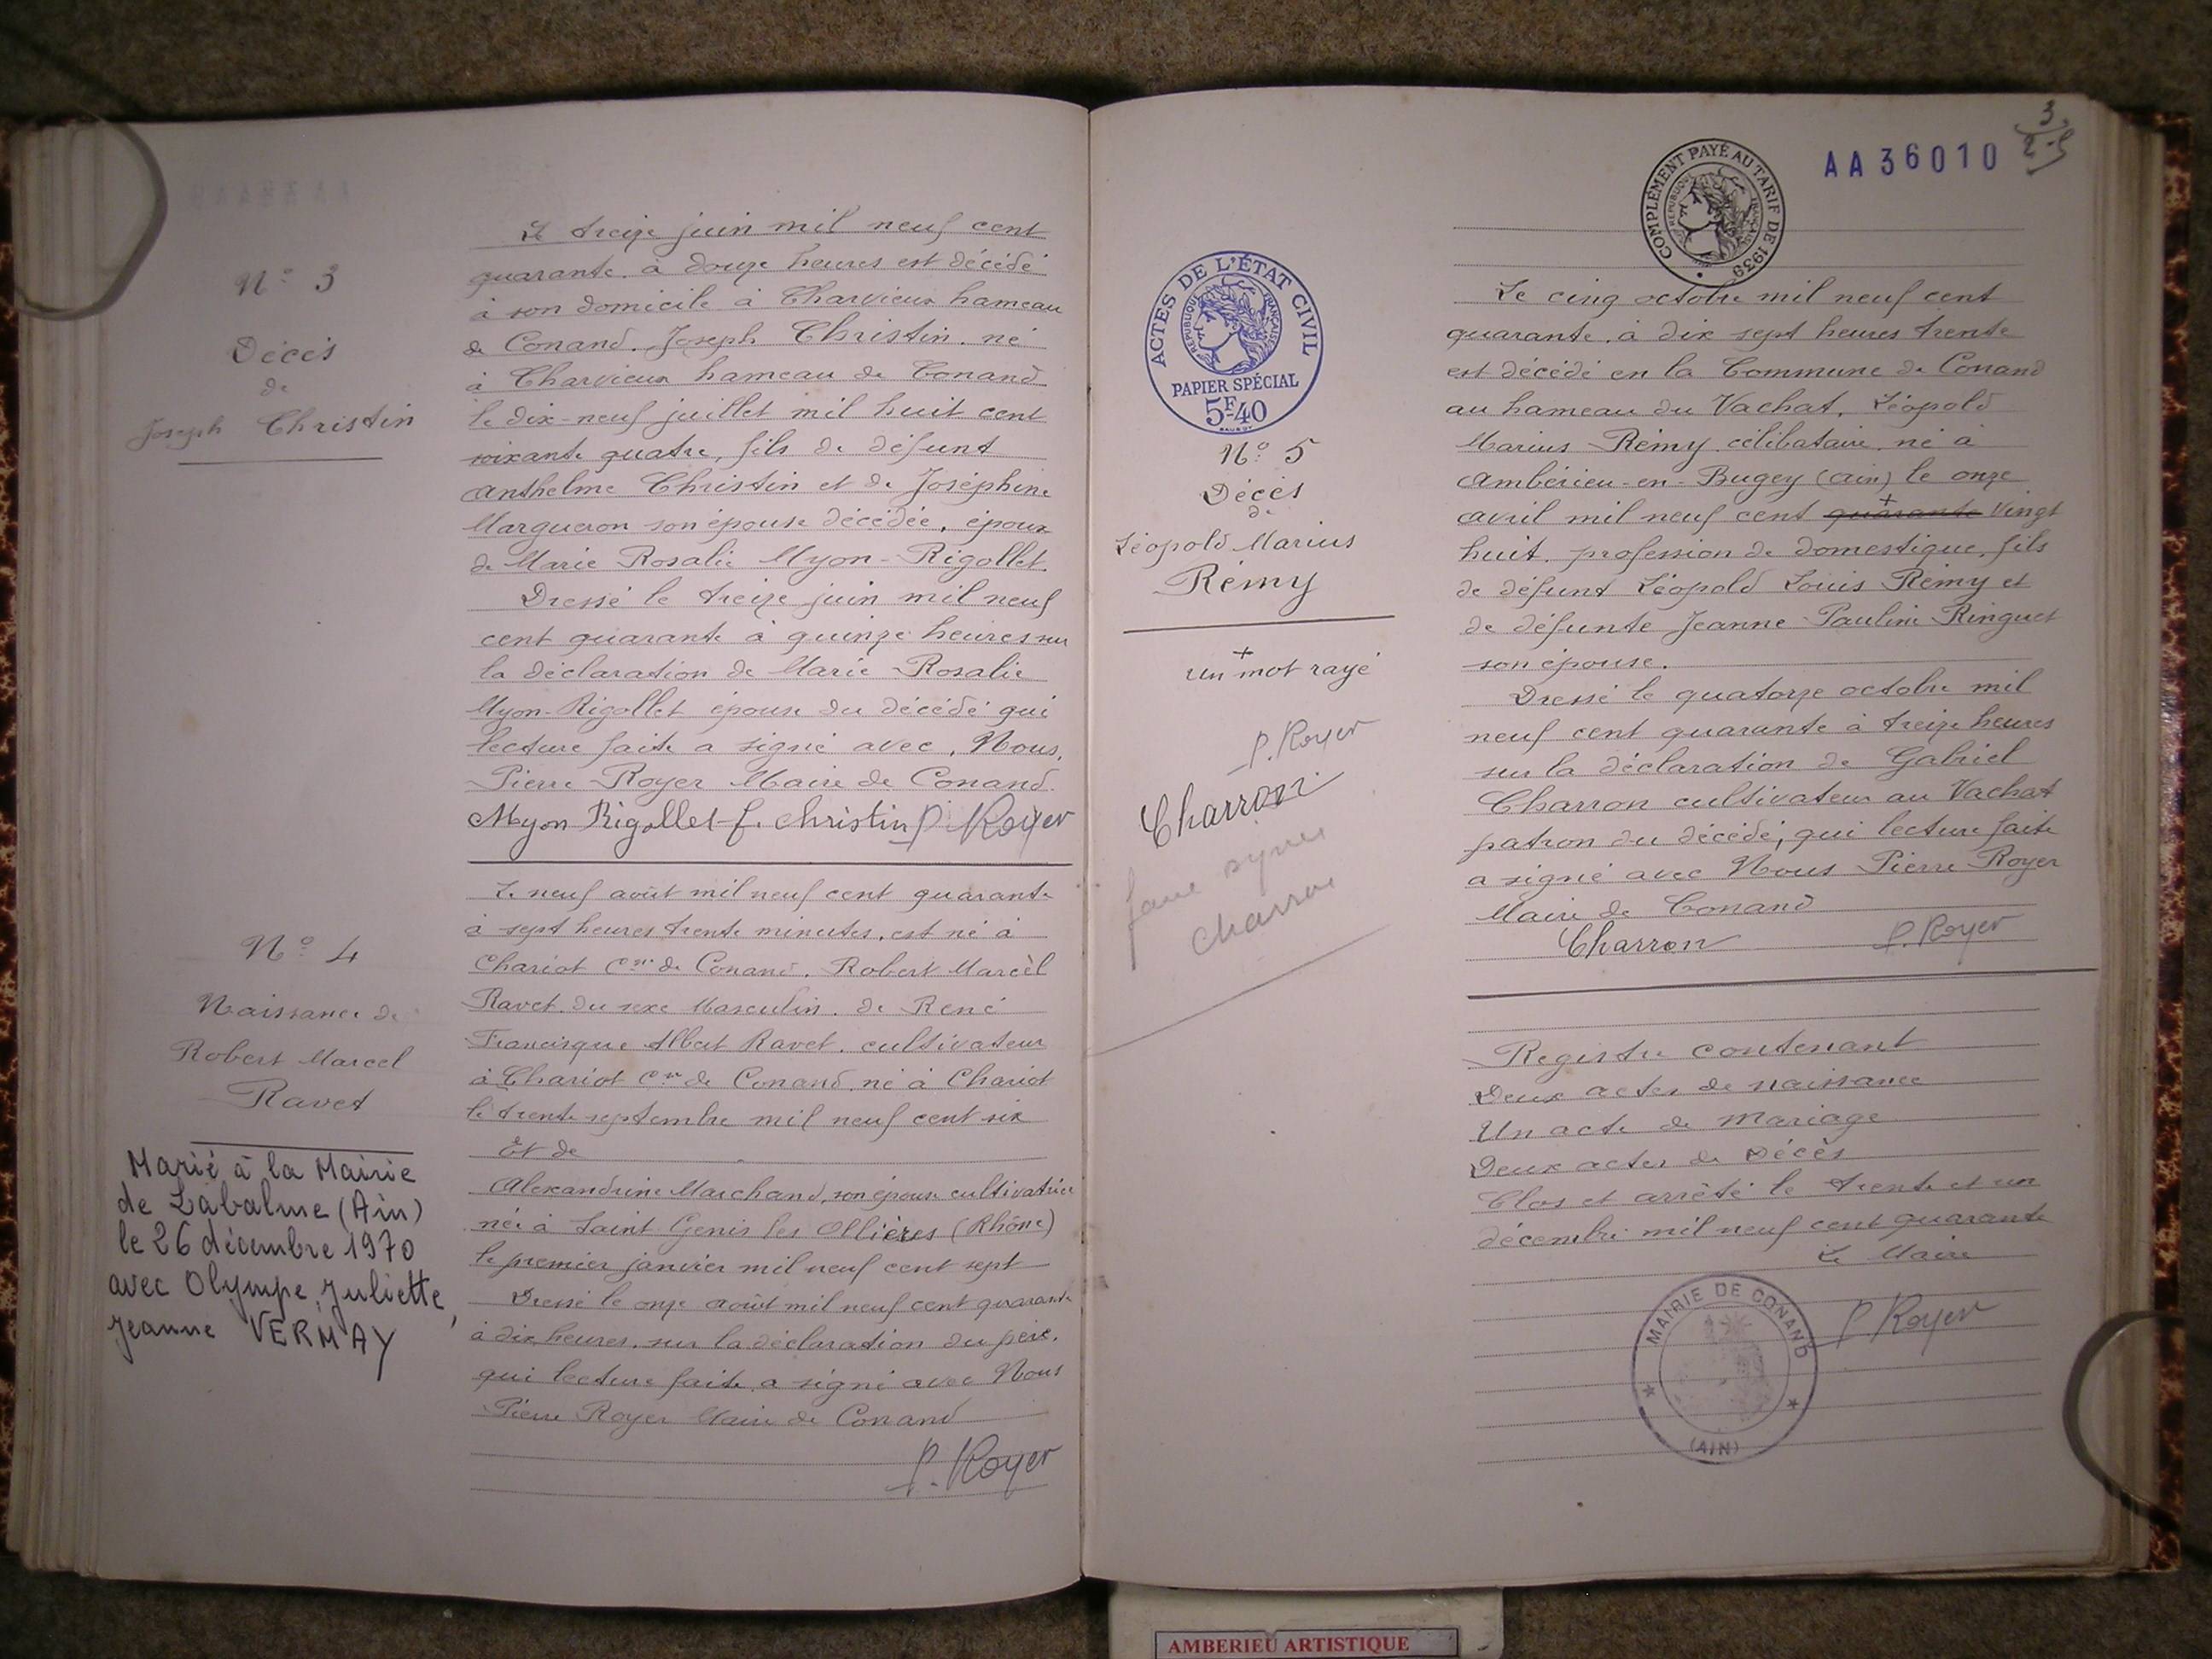 N° 3
Décès
de
Joseph Christin
Le treize juin mil neuf cent
quarante à douze heures est décédé
à son domicile à Charvieux hameau
de Conand, Joseph Christin, né
à Charvieux hameau de Conand
le dix-neuf juillet mil huit cent
soixante quatre, fils de défunt
Anthelme Christin et de Joséphine
Margueron son épouse décédée, époux
de Marie Rosalie Myon-Rigollet.
Dressé le treize juin mil neuf
cent quarante à quinze heures sur
la déclaration de Marie Rosalie
Myon-Rigollet épouse du décédé qui
lecture faite a signé avec, Nous,
Pierre Royer Maire de Conand.
Myon Rigollet f. christin P. Royer
N° 4
Naissance de
Robert Marcel
Ravet
Marié à la Mairie
de Labalme (Ain)
le 26 décembre 1970
avec Olympe, Juliette,
Jeanne VERMAY
Le neuf août mil neuf cent quarante
à sept heures trente minutes, est né à
Chariot Cne de Conand. Robert Marcèl
Ravet. du sexe Masculin. de René
Francisque Albert Ravet. cultivateur
à Chariot Cne de Conand, né à Chariot
le trente septembre mil neuf cent six
Et de
Alexandrine Marchand, son épouse cultivatrice
née à Saint Genis les Ollières (Rhône)
le premier janvier mil neuf cent sept
Dressé le onze août mil neuf cent quarante
à dix heures. sur la déclaration du père,
qui lecture faite, a signé avec Nous
Pierre Royer Maire de Conand
P. Royer
3
AA36010
COMPLÉMENT PAYÉ AU TARIF DE 1939
REPUBLIQUE FRANÇAISE
ACTES DE L'ÉTAT CIVIL
REPUBLIQUE FRANÇAISE
PAPIER SPÉCIAL
5F40
N° 5
Décès
de
Léopold Marius
Rémy
+
un mot rayé
P. Royer
Charron
faire signer
Charron
Le cinq octobre mil neuf cent
quarante, à dix sept heures trente
est décédé en la Commune de Conand
au hameau du Vachat, Léopold
Marius Rémy célibataire, né à
Ambérieu-en-Bugey (Ain) le onze
avril mil neuf cent quarante + vingt
huit, profession de domestique, fils
de défunt Léopold Louis Rémy et
de défunte Jeanne Pauline Ringuet
son épouse.
Dressé le quatorze octobre mil
neuf cent quarante à treize heures
sur la déclaration de Gabriel
Charron cultivateur au Vachat
patron du décédé, qui lecture faite
a signé avec Nous Pierre Royer
Maire de Conand
Charron P. Royer
Registre contenant
Deux actes de naissance
Un acte de Mariage
Deux actes de Décès
Clos et arrêté le trente et un
décembre mil neuf cent quarante
Le Maire
P Royer
MAIRIE DE CONAND
(AIN)
AMBERIEU ARTISTIQUE